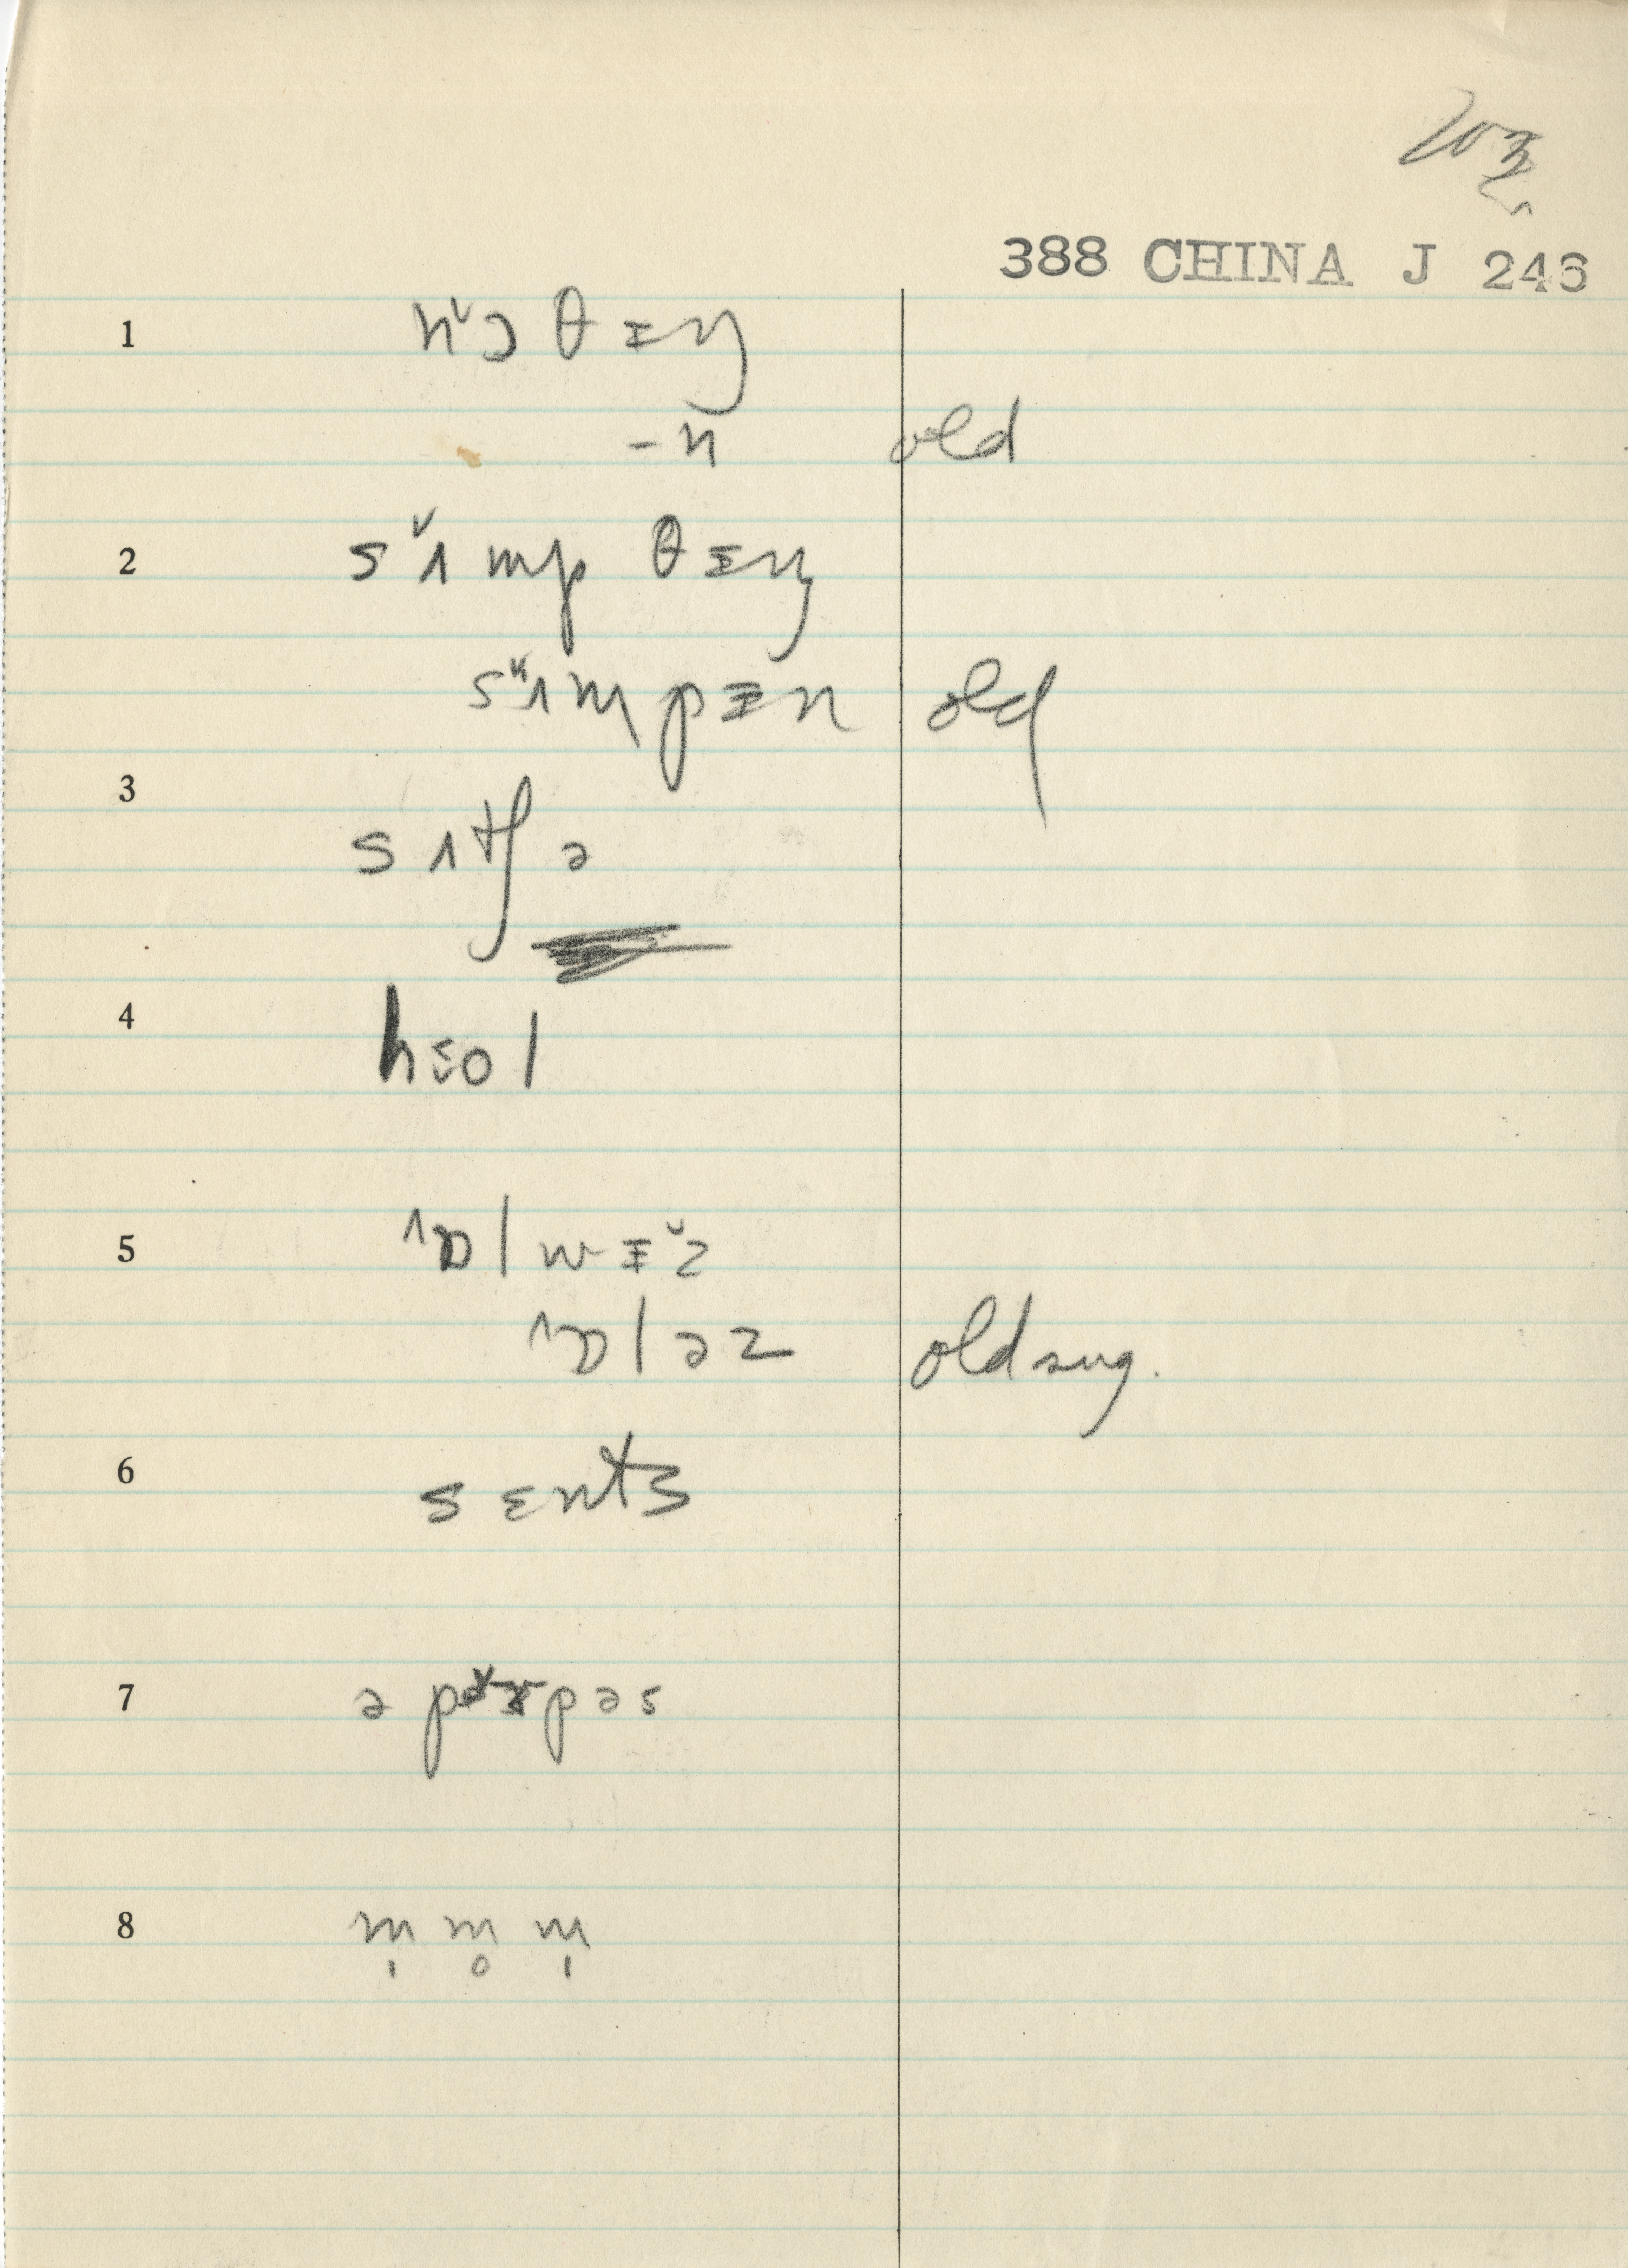 388 CHINA J 246
1 nᵛɔ θ ɪ ŋ
-n old
2 sᵛʌ mp θ ɪ ŋ
sᵛʌmpɪn old
3 s ʌ tʃ ə
4 hɛol
5 ^ɒ l w ɪᵛz
^ɒ l ə z old sug.
6 s ɛnts
7 ə p pəs
8 m̩ m̥ m̩